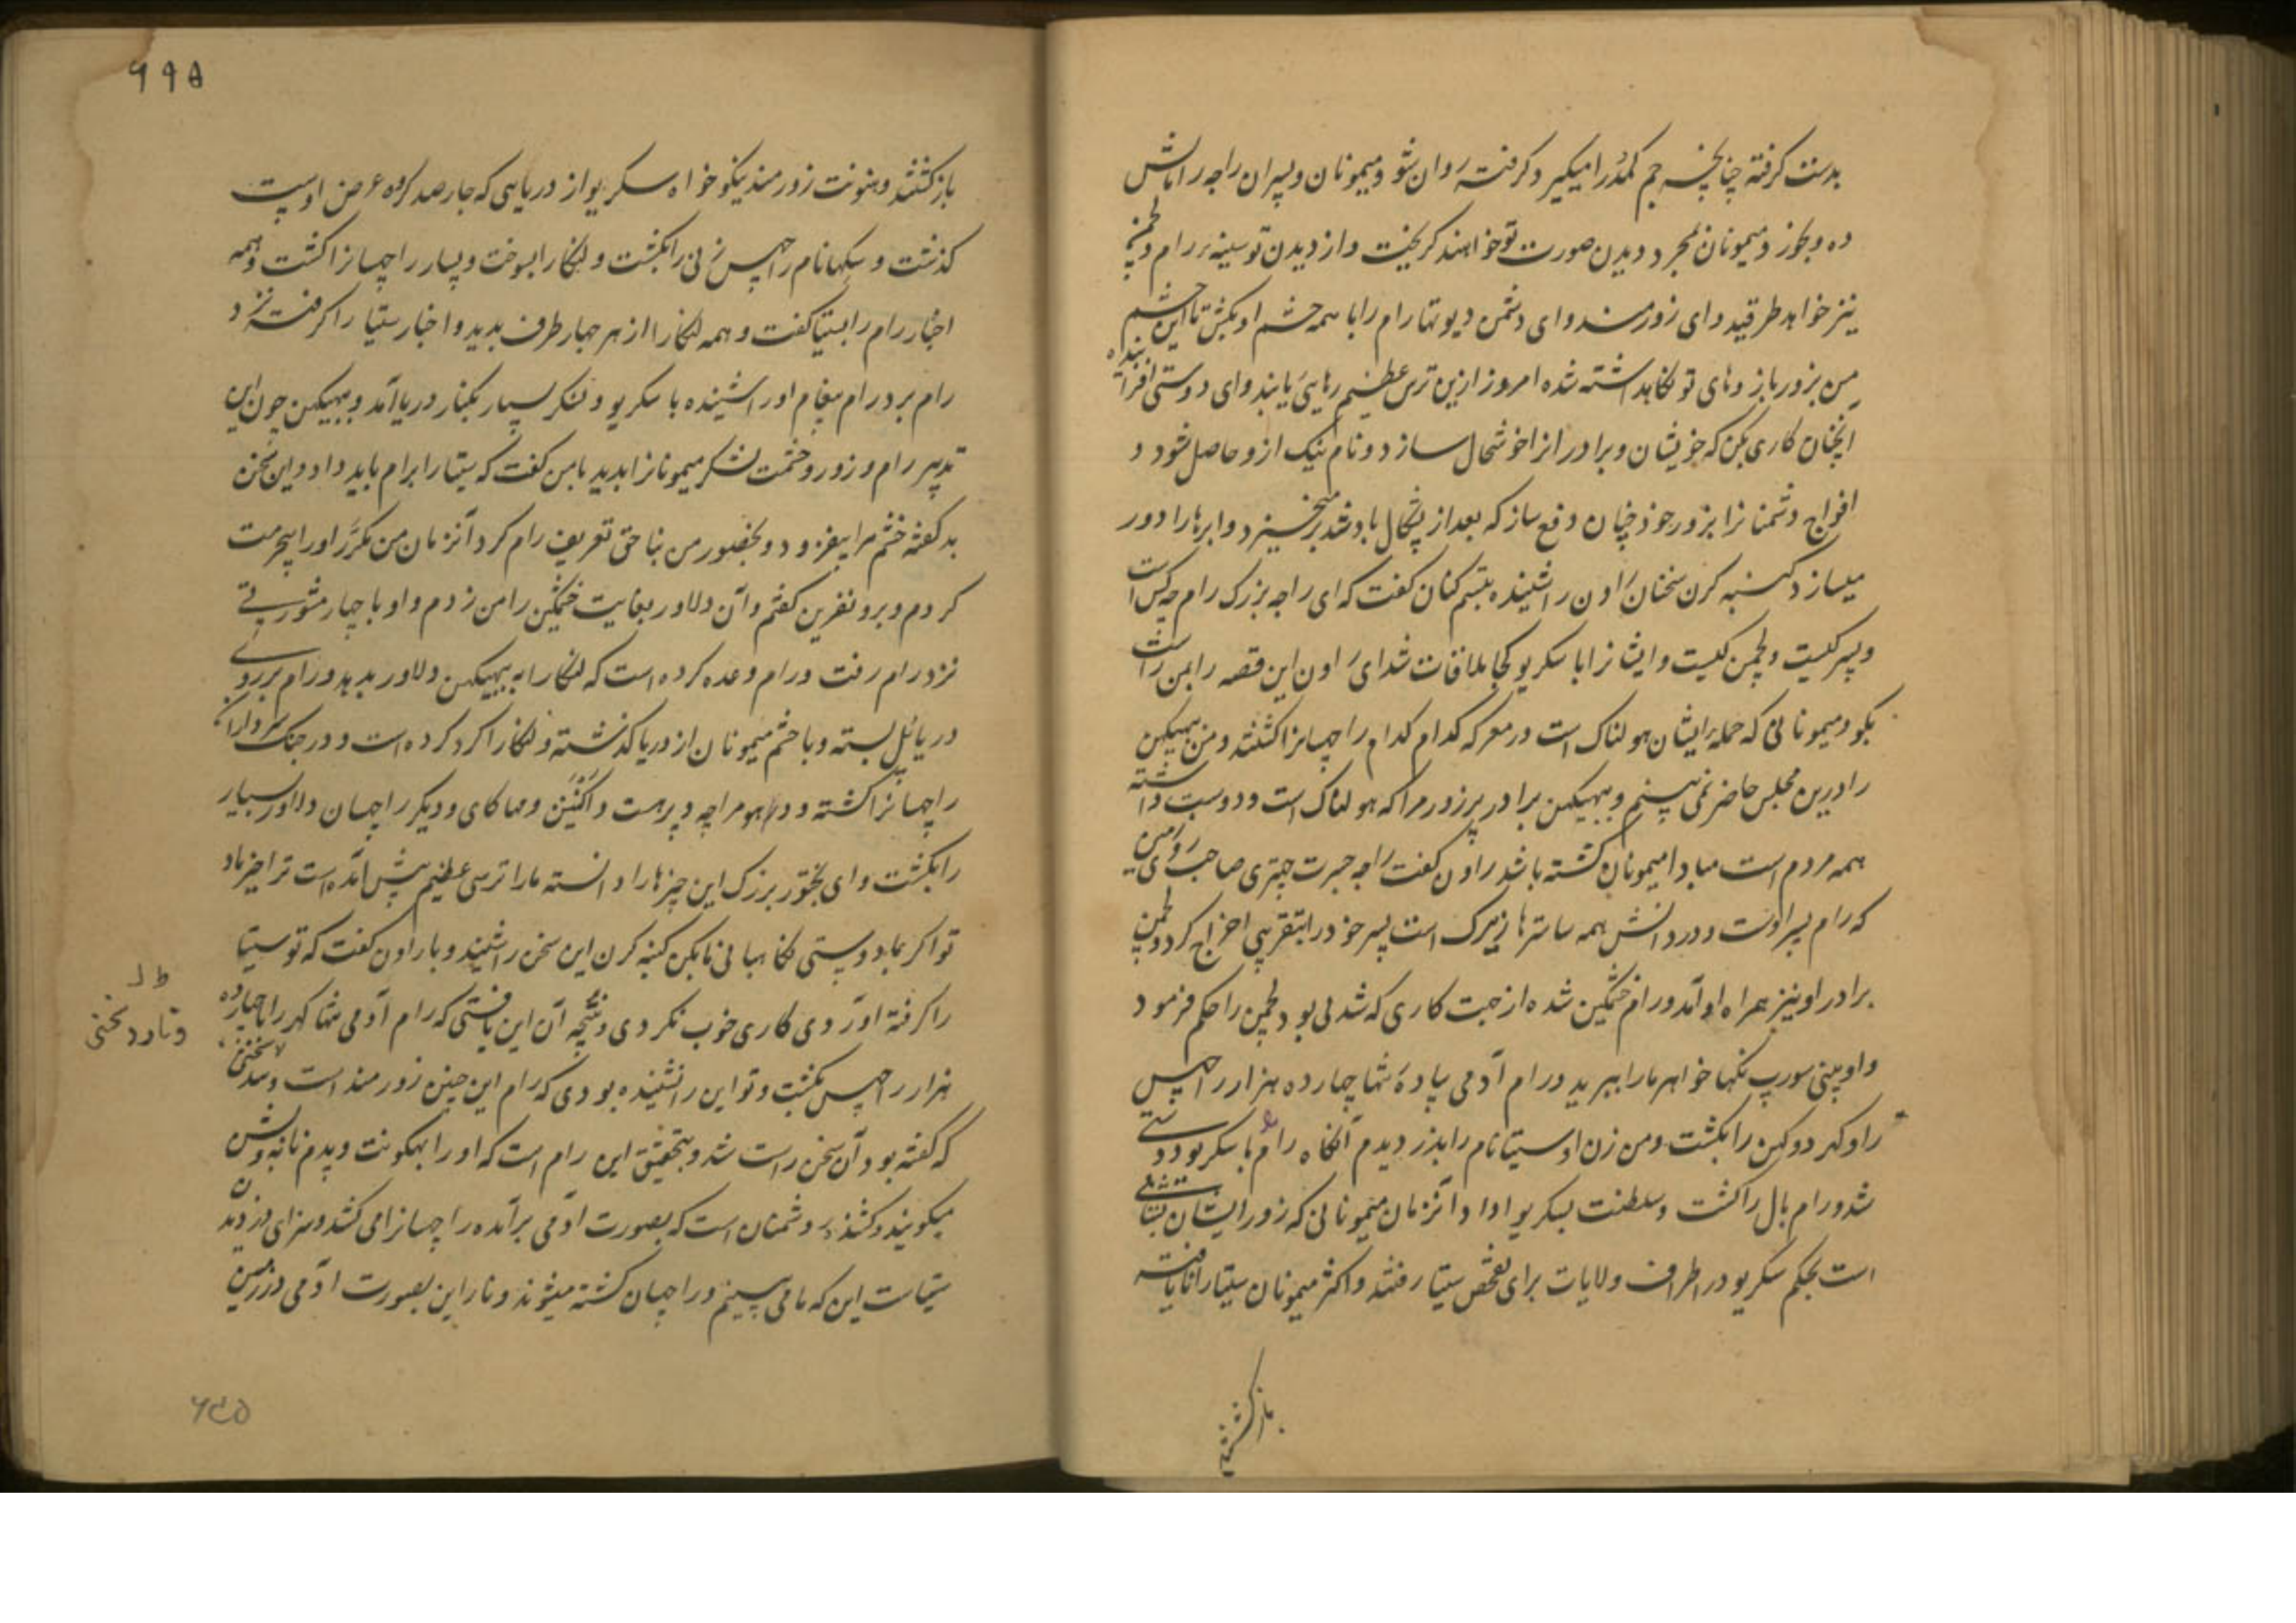 بدست گرفته چنانچه جم کمدر را میگیرد گرفته روان شو و میمونان و پسران راجه را
ده و میمونان بمجرد دیدن صورت تو خواهند گریخت و از دیدن تو سینه رام و لچمن
نیز خواهد طرقید و ای زورمند و ای دشمن دیوتها رام را با همه حشم او بکش تا این حشم
من بزور بازوهای تو نگاهداشته شده امروز ازین ترس عظیم رهایی یابند و ای دوستی افزاینده
آنچنان کاری بکن که خویشان و برادرانرا خوشحال سازد و نام نیک ازو حاصل شود و
افواج دشمنانرا بزور خود چنان دفع ساز که بعد از پشکال باد تند برمیخیزد و ابرها را دور
میسازد کنبه کرن سخنان راون را شنیده تبسم کنان گفت که ای راجه بزرگ رام چه کس است
و پسر کیست و لچمن کیست و ایشانرا با سکریو کجا ملاقات شد ای راون این قصه را بمن راست
بگو و میمونانی که حمله ایشان هولناک است در معرکه کدام کدام راچهسانرا کشتند و من ببهیکهن
را درین مجلس حاضر نمی بینم و ببهیکهن برادر پرزور مرا که هولناک است و دوست داشته
همه مردم است مبادا میمونان کشته باشند راون گفت راجه جسرت چتری صاحب روی زمین
که رام پسر اوست و در دانش همه ساسترها زیرک است پسر خود را بتقریبی اخراج کرد و لچمن
برادر او نیز همراه او آمد و رام خشمگین شده از جهت کاری که شدنی بود لچمن را حکم فرمود
و او بینی سورپ نکها خواهر ما را ببرید و رام آدمی پیاده تنها چهارده هزار راچهس
را و کهر دوکهن را بکشت و من زن او سیتا نام را بدزدیدم آنگاه رام با سکریو دوستی
شد و رام بال را کشت و سلطنت بسکریو داد و آنزمان میمونانی که زور ایشان
است بحکم سکریو در اطراف ولایات برای تفحص سیتا رفتند و اکثر میمونان سیتا را نایافته
باز گشتند
۶۹۵
باز گشتند و هنونت زورمند نیکوخواه سکریو از دریایی که چارصد کروه عرض اوست
گذشت و سکها نام راچهس زنی را بکشت و لنکا را بسوخت و بسیار راچهسانرا کشت و همه
اخبار رام را بسیتا گفت و همه لنکا را از هر چهار طرف بدید و اخبار سیتا را گرفته نزد
رام برد رام پیغام او را شنیده با سکریو و لشکر بسیار بکنار دریا آمد و ببهیکهن چون این
تدبیر رام و زور و حشمت لشکر میمونانرا بدید بامن گفت که سیتا را برام باید داد و این سخن
بد گفته خشم مرا بیفزود و بحضور من بناحق تعریف رام کرد آنزمان من مکرر او را بیحرمت
کردم و برو نفرین گفتم و آن دلاور بغایت خشمگین را من زدم و او با چهار مشورتی
نزد رام رفت و رام وعده کرده است که لنکا را به ببهیکهن دلاور بدهد و رام بر روی
دریا پل بسته و با خشم میمونان از دریا گذشته و لنکا را گرد کرده است و در جنگ سرداران
راچهسانرا کشته و دهومراچه و پرهست و اکنپن و مهاکای و دیگر راچهسان دلاور بسیار
را بکشت و ای بختور بزرگ این چیزها را دانسته ما را ترسی عظیم پیش آمده است ترا خیر باد
تو اکر بماد دوستی نگاهبانی ما بکن کنبه کرن این سخن را شنید و با راون گفت که تو سیتا
را گرفته آوردی کاری خوب نکردی و نتیجه آن این یافتی که رام آدمی تنها کهر را با چهارده
هزار راچهس بکشت و تو این را نشنیده بودی که رام این چنین زورمند است و سخنی
که گفته بود آن سخن راست شد و بتحقیق این رام است که او را بهگونت و پدم نابه و بشن
میگویند و کشنده دشمنان است که بصورت آدمی برآمده راچهسانرا می کشد و سزای دزدیدن
سیتاست این که ما می بینم و راچهسان کشته میشوند و ناراین بصورت آدمی در زمین
و نارد سخنی
۶۳۵